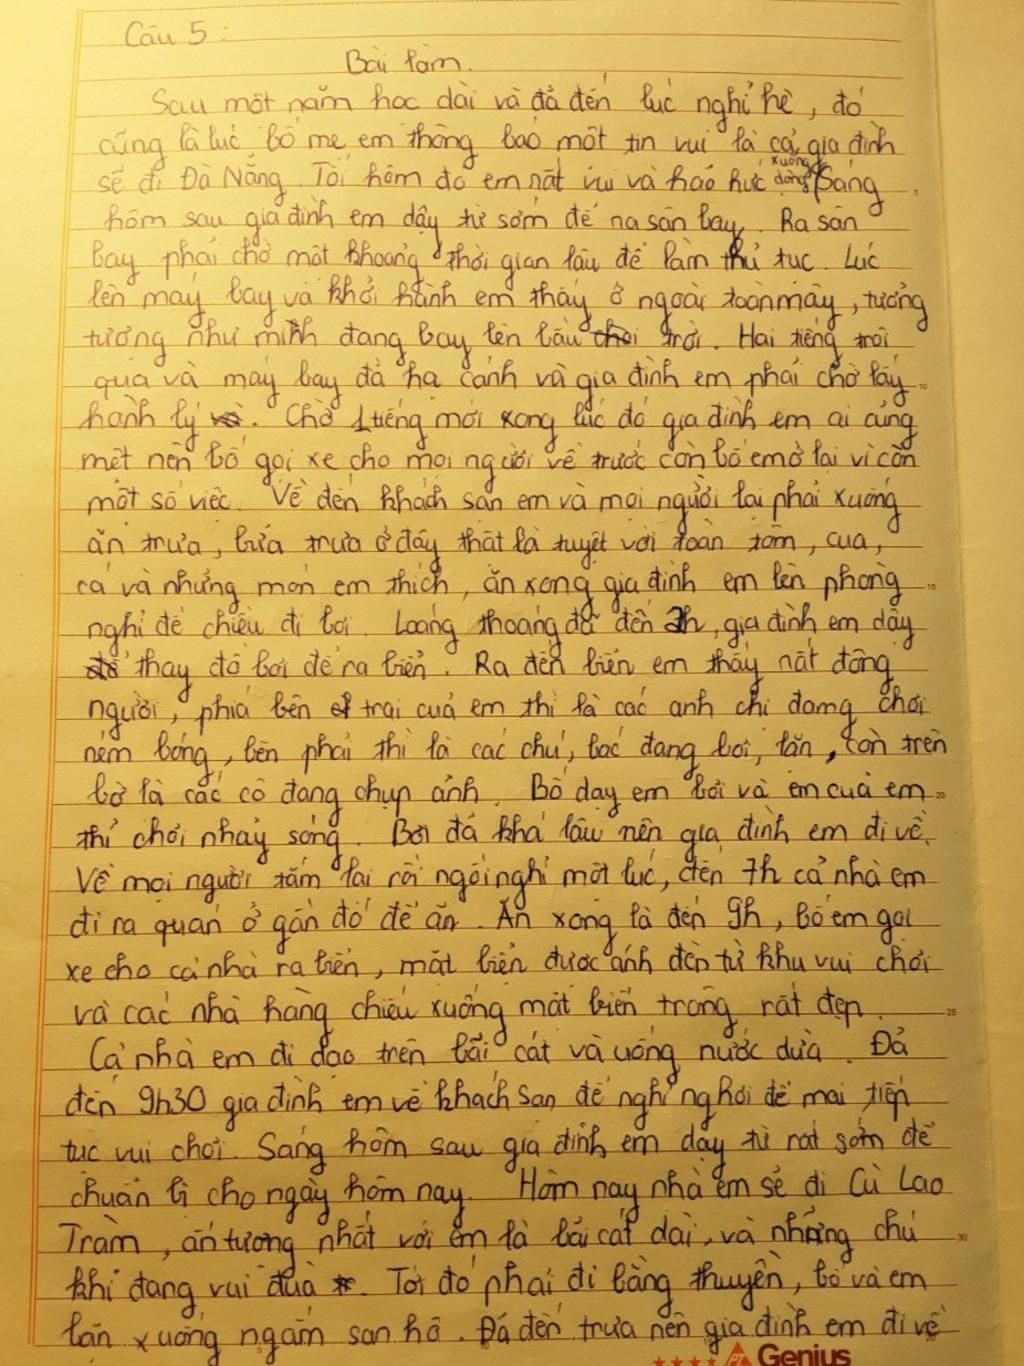 Câu 5:
Bài làm.
Sau một năm học dài và đã đến lúc nghỉ hè, đó
cũng là lúc bố mẹ em thông báo một tin vui là cả gia đình
sẽ đi Đà Nẵng. Tối hôm đó em rất vui và háo hức xuống dòng Sáng
hôm sau gia đình em dậy từ sớm để ra sân bay. Ra sân
bay phải chờ một khoảng thời gian lâu để làm thủ tục. Lúc
lên máy bay và khởi hành em thấy ở ngoài toàn mây, tưởng
tượng như mình đang bay lên bầu trời. Hai tiếng trôi
qua và máy bay đã hạ cánh và gia đình em phải chờ lấy
hành lý. Chờ 1 tiếng mới xong lúc đó gia đình em ai cũng
mệt nên bố gọi xe cho mọi người về trước còn bố em ở lại vì còn
một số việc. Về đến khách sạn em và mọi người lại phải xuống
ăn trưa, bữa trưa ở đây thật là tuyệt vời toàn tôm, cua,
cá và những món em thích, ăn xong gia đình em lên phòng
nghỉ để chiều đi bơi. Loáng thoáng đã đến 2h, gia đình em dậy
thay đồ bơi để ra biển. Ra đến biển em thấy nất đông
người, phía bên trái của em thì là các anh chị đamg chơi
ném bóng, bên phải thì là các chú, bác đang bơi, lặn, còn trên
bờ là các cô đang chụp ảnh. Bố dạy em bơi và em của em
thì chơi nhảy sóng. Bơi đã khá lâu nên gia đình em đi về.
Về mọi người tắm lại rồi ngồi nghỉ một lúc, đến 7h cả nhà em
đi ra quán ở gần đó để ăn. Ăn xong là đến 9h, bố em gọi
xe cho cả nhà ra biển, mặt biển được ánh đèn từ khu vui chơi
và các nhà hàng chiếu xuống mặt biển trông rất đẹp.
Cả nhà em đi dạo trên bãi cát và uống nước dừa. Đã
đến 9h30 gia đình em về khách sạn để nghỉ nghơi để mai tiếp
tục vui chơi. Sáng hôm sau gia đình em dậy từ rất sớm để
chuẩn bị cho ngày hôm nay. Hôm nay nhà em sẽ đi Cù Lao
Tràm, ấn tượng nhất với em là bãi cát dài, và những chú
khỉ đang vui đùa. Tới đó phải đi bằng thuyền, bố và em
lặn xuống ngắm san hô. Đã đến trưa nên gia đình em đi về
Genius